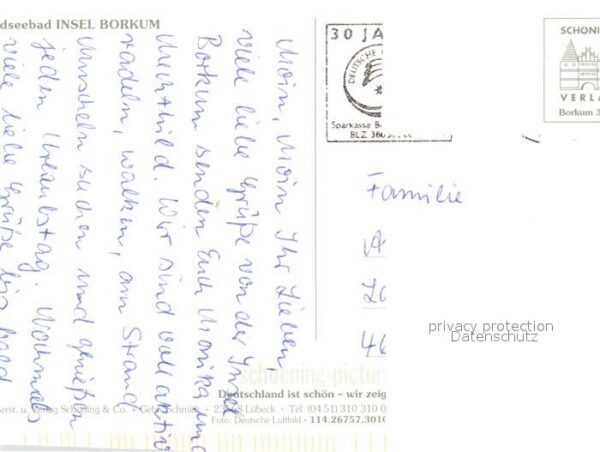 dseebad INSEL BORKUM
Moin, Moin Ihr Lieben,
viele liebe Grüße von der Insel
Borkum senden Euch Monika und
Mechthild. Wir sind voll aktiv
radeln, walken, am Strand
Muscheln suchen und genießen
jeden Urlaubstag. Nochmals
viele liebe Grüße bis bald
30 JA
DEUTSCHE
Sparkasse
BLZ
SCHÖNI
VERLA
Borkum 3
Familie
46
privacy protection
Datenschutz
schoening-pictur
Deutschland ist schön – wir zeig
erst. u. Verlag Schöning & Co. • Gebr. Schmidt • Lübeck • Tel. (04 51) 310 310 0
Foto: Deutsche Luftbild • 114.26757.3010